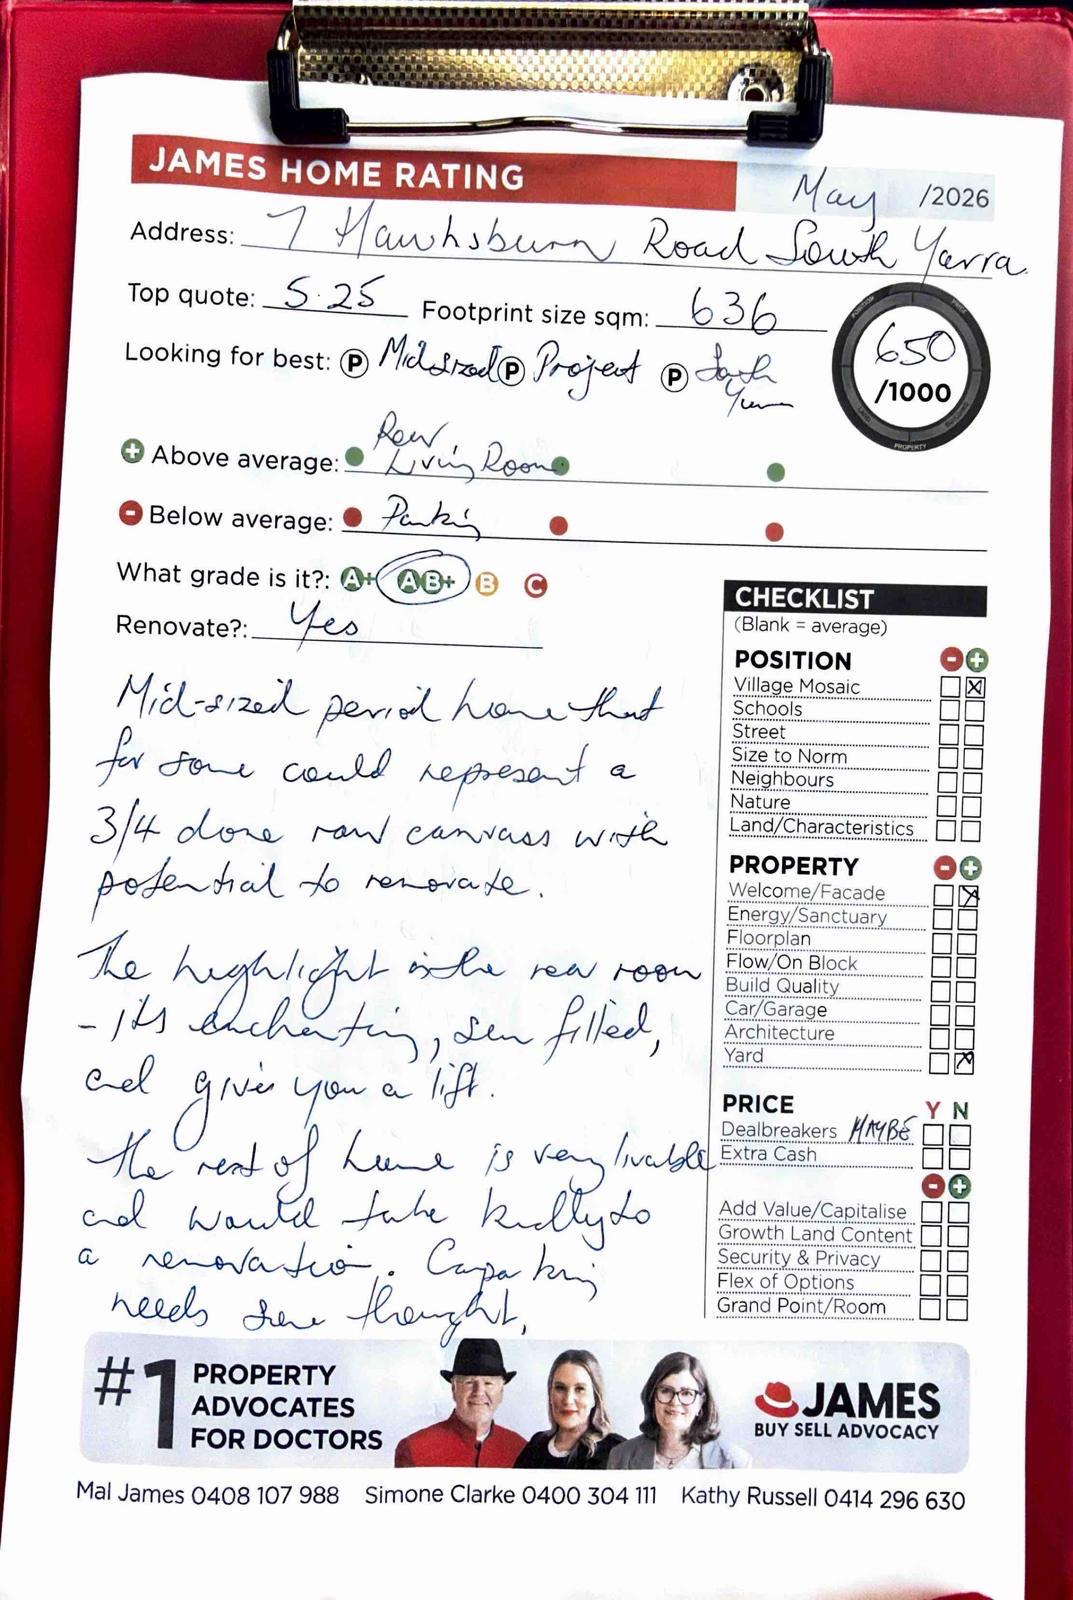 JAMES HOME RATING
May /2026
Address: 7 Hawksburn Road South Yarra
Top quote: 5.25 Footprint size sqm: 636
650
/1000
Looking for best: P Mid-sized P Project P South
Yarra
Rear
+ Above average: Living Room
- Below average: Parking
What grade is it?: A+ AB+ B C
Renovate?: Yes
Mid-sized period home that
for some could represent a
3/4 done raw canvass with
potential to renovate.
The highlight is the rear room
- its enchanting, sun filled,
and gives you a lift.
The rest of home is very livable
and would take kindly to
a renovation. Carparking
needs some thought.
CHECKLIST
(Blank = average)
POSITION - +
Village Mosaic
Schools
Street
Size to Norm
Neighbours
Nature
Land/Characteristics
PROPERTY - +
Welcome/Facade
Energy/Sanctuary
Floorplan
Flow/On Block
Build Quality
Car/Garage
Architecture
Yard
PRICE Y N
Dealbreakers MAYBE
Extra Cash
- +
Add Value/Capitalise
Growth Land Content
Security & Privacy
Flex of Options
Grand Point/Room
#1 PROPERTY
ADVOCATES
FOR DOCTORS
JAMES
BUY SELL ADVOCACY
Mal James 0408 107 988 Simone Clarke 0400 304 111 Kathy Russell 0414 296 630